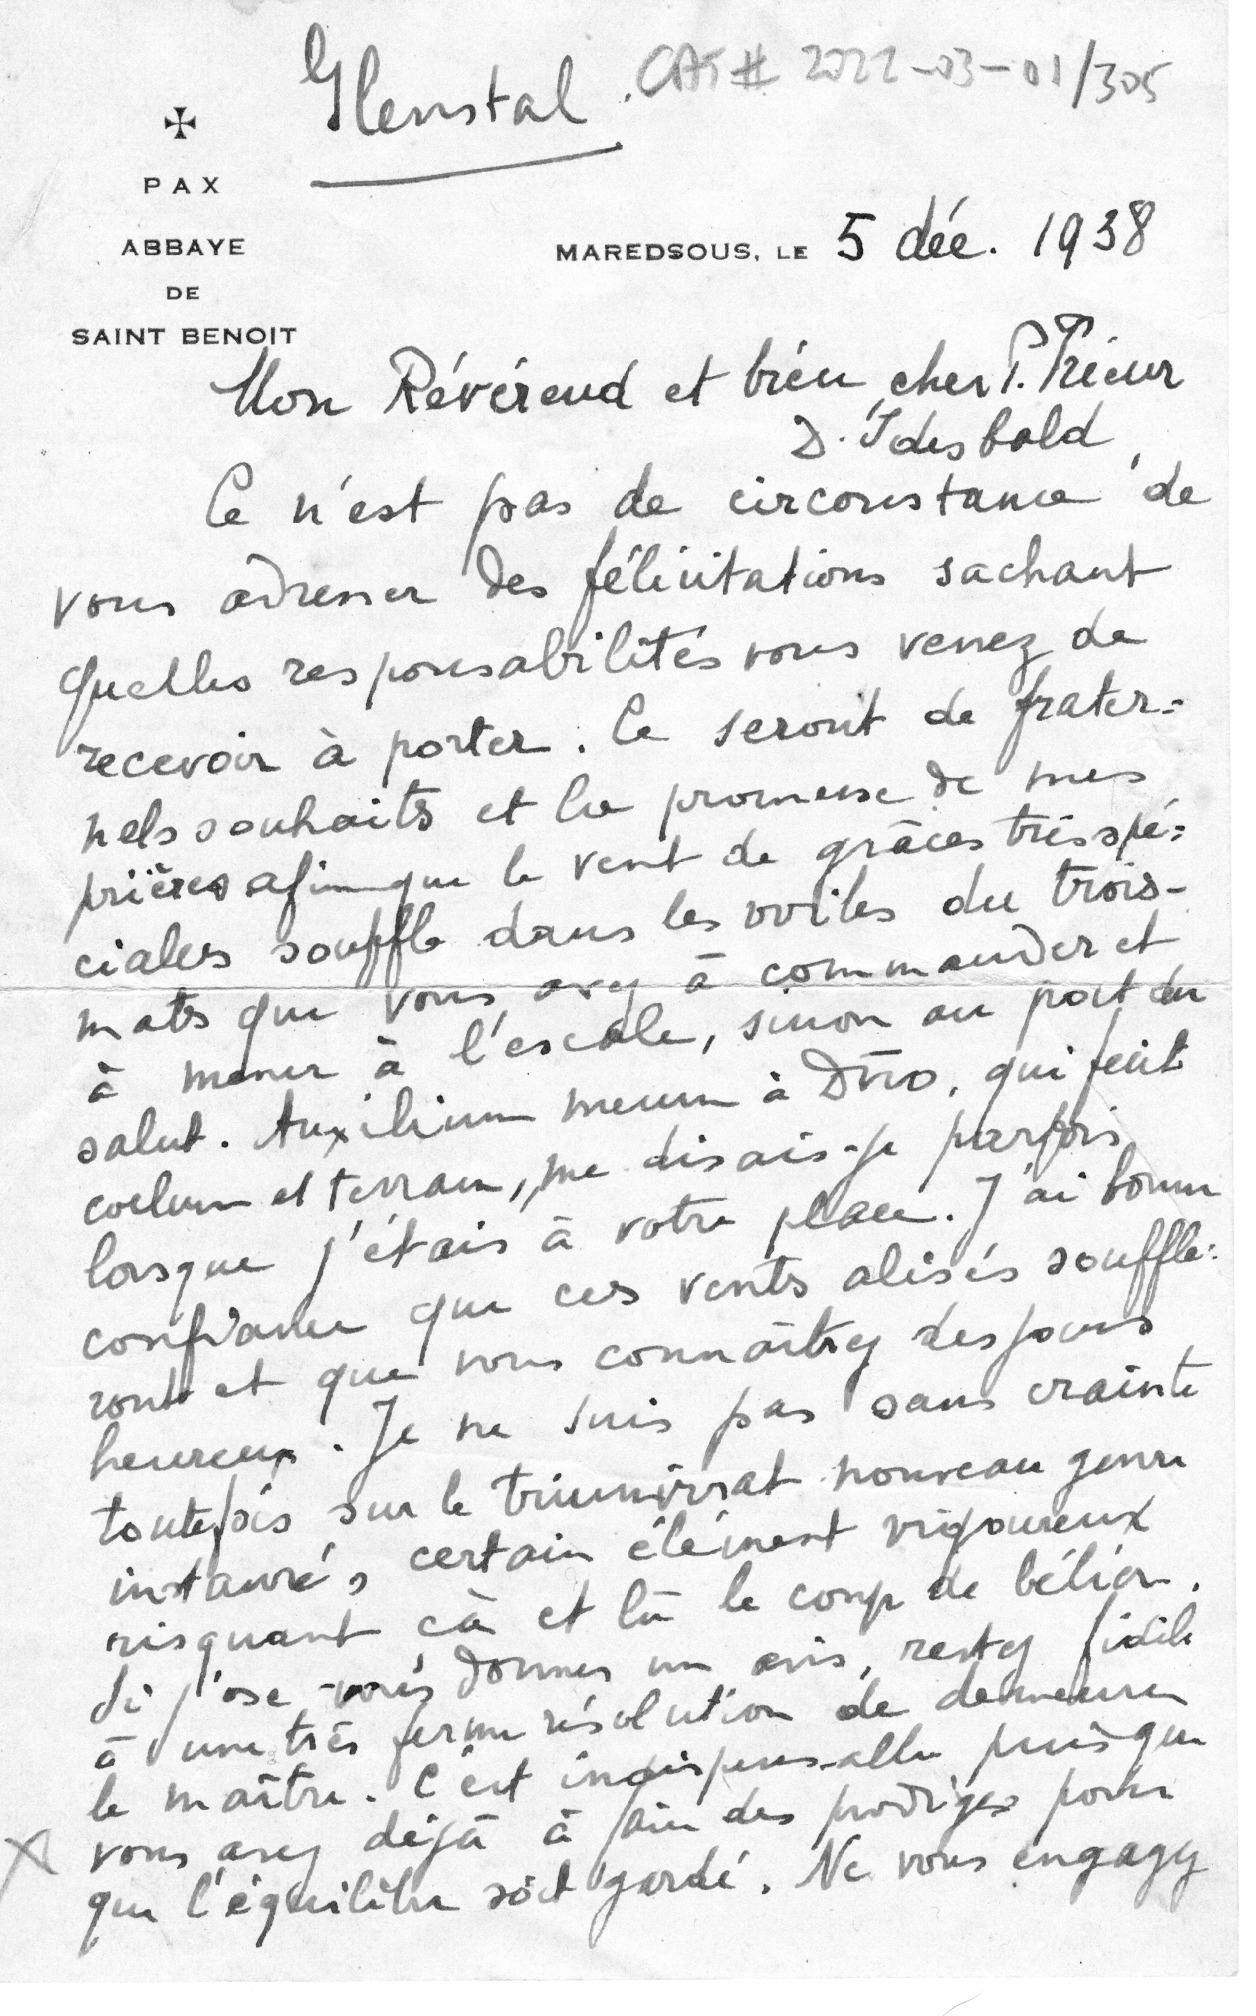 Glenstal.
CAT # 2022-03-01/305
PAX
ABBAYE
DE
SAINT BENOIT
MAREDSOUS, LE 5 déc. 1938
Mon Révérend et bien cher P. Prieur
D. Idesbald,
Ce n'est pas de circonstance de
vous adresser des félicitations sachant
quelles responsabilités vous venez de
recevoir à porter. Ce seront de frater=
nels souhaits et la promesse de mes
prières afin que le vent de grâces très spé=
ciales souffle dans les voiles du trois-
mats que vous avez à commander et
à mener à l'escale, sinon au port du
salut. Auxilium meum à Dño, qui fecit
coelum et terram, me disais-je parfois
lorsque j'étais à votre place. J'ai bonne
confiance que ces vents alisés souffle=
ront et que vous connaîtrez des jours
heureux. Je ne suis pas sans crainte
toutefois sur le triumvirat nouveau genre
instauré, certain élément vigoureux
risquant çà et là le coup de bélier.
Si j'ose vous donner un avis, restez fidèle
à une très ferme résolution de demeurer
le maître. C'est indispensable puisque
vous avez déjà à faire des prodiges pour
que l'équilibre soit gardé. Ne vous engagez